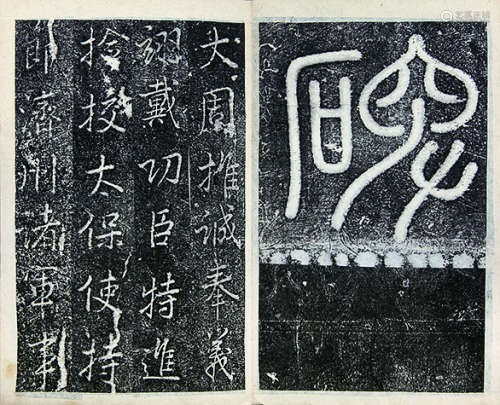 碑
大周推誠奉義
翊戴功臣特進
撿校太保使持
節濟州諸軍事